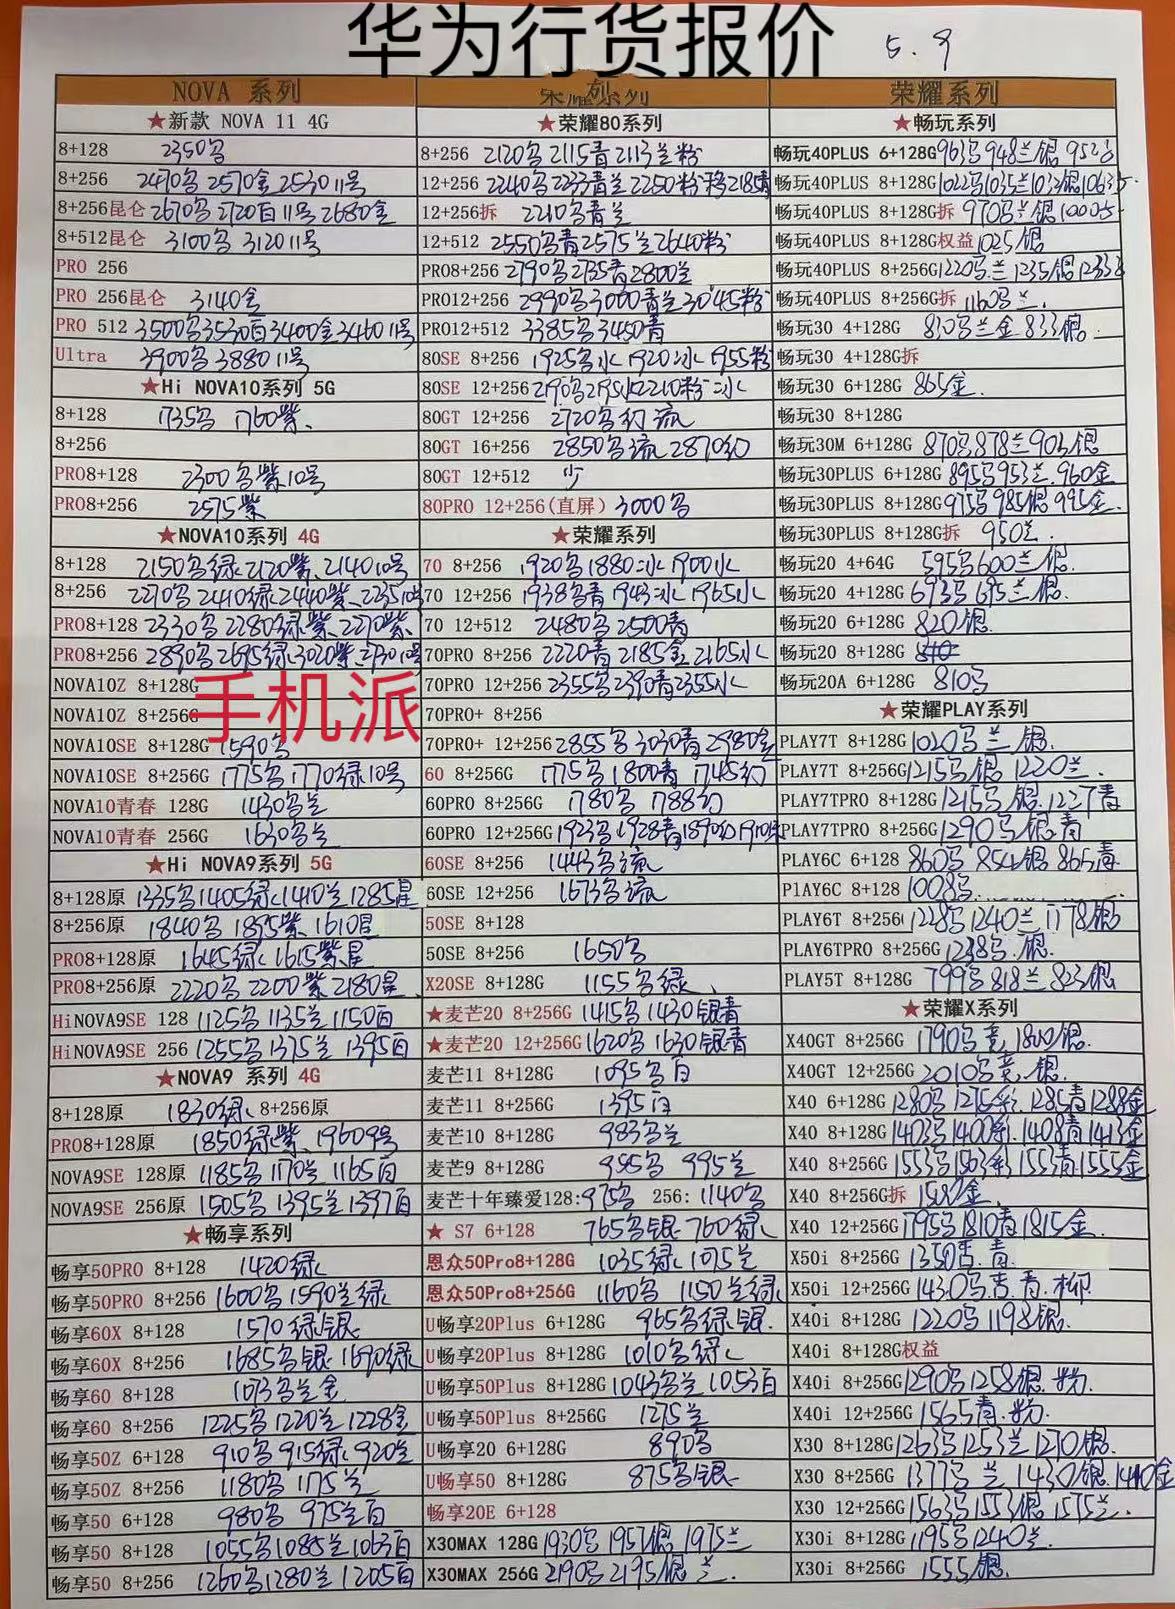 华为行货报价
5.9
NOVA 系列
★新款 NOVA 11 4G
8+128 2350鸟
8+256 2470鸟 2570金 2530 11号
8+256昆仑 2670鸟 2720百11号 2680金
8+512昆仑 3100鸟 3120 11号
PRO 256
PRO 256昆仑 3140金
PRO 512 3500鸟3530百3400金3460 11号
Ultra 3900鸟 3880 11号
★Hi NOVA10系列 5G
8+128 1735鸟 1760紫.
8+256
PRO8+128 2300鸟紫10号
PRO8+256 2575紫
★NOVA10系列 4G
8+128 2150鸟绿2120紫.2140 10号
8+256 2270鸟2410绿2440紫.2235 10号
PRO8+128 2330鸟 2280绿紫.2270紫.
PRO8+256 2890鸟2695绿3020紫
NOVA10Z 8+128G
手机派
NOVA10Z 8+256G
NOVA10SE 8+128G 1590鸟
NOVA10SE 8+256G 1775鸟1770绿10号
NOVA10青春 128G 1430鸟兰
NOVA10青春 256G 1630鸟兰
★Hi NOVA9系列 5G
8+128原 1335鸟1405绿1410兰1285星
8+256原 1840鸟 1895紫.1610星
PRO8+128原 1645绿 1615紫星
PRO8+256原 2220鸟 2200紫2180星
HiNOVA9SE 128 1125鸟 1135兰 1150百
HiNOVA9SE 256 1255鸟1375兰 1395百
★NOVA9 系列 4G
8+128原 1830绿 8+256原
PRO8+128原 1850绿紫.1960 9号
NOVA9SE 128原 1185鸟1170兰 1165百
NOVA9SE 256原 1505鸟 1395兰1397百
★畅享系列
畅享50PRO 8+128 1420绿
畅享50PRO 8+256 1600鸟1590兰绿
畅享60X 8+128 1570绿银
畅享60X 8+256 1685鸟银1690绿
畅享60 8+128 1073鸟兰金
畅享60 8+256 1225鸟1220兰1228金
畅享50Z 6+128 910鸟 915绿.920兰
畅享50Z 8+256 1180鸟 1175兰
畅享50 6+128 980鸟 975兰百
畅享50 8+128 1055鸟1085兰1063百
畅享50 8+256 1260鸟1280兰1205百
荣耀系列
★荣耀80系列
8+256 2120鸟 2115青2113兰粉
12+256 2240鸟2233青兰2250粉
12+256拆 2210鸟青兰
12+512 2550鸟青2575兰2640粉
PRO8+256 2790鸟2735青2800兰
PRO12+256 2990鸟3000青兰3045粉
PRO12+512 3385鸟3450青
80SE 8+256 1925鸟水1920冰1955粉
80SE 12+256 2190鸟2195水2210粉冰
80GT 12+256 2720鸟幻 流
80GT 16+256 2850鸟流2870幻
80GT 12+512 少
80PRO 12+256(直屏) 3000鸟
★荣耀系列
70 8+256 1920鸟1880冰1900水
70 12+256 1938鸟青 1943冰1965水
70 12+512 2480鸟2500青
70PRO 8+256 2220青2185金2165水
70PRO 12+256 2355鸟2390青2355水
70PRO+ 8+256
70PRO+ 12+256 2855鸟3030青2980金
60 8+256G 1775鸟1800青1745幻
60PRO 8+256G 1780鸟 1788幻
60PRO 12+256G 1923鸟1928青1890幻1910
60SE 8+256 1443鸟流
60SE 12+256 1673鸟流
50SE 8+128
50SE 8+256 1650鸟
X20SE 8+128G 1155鸟绿.
★麦芒20 8+256G 1415鸟1430银青
★麦芒20 12+256G 1620鸟1630银青
麦芒11 8+128G 1095鸟百
麦芒11 8+256G 1395百
麦芒10 8+128G 983鸟兰
麦芒9 8+128G 985鸟 995兰
麦芒十年臻爱128:975鸟 256: 1140鸟
★ S7 6+128 765鸟银 760绿
恩众50Pro8+128G 1035绿1075兰
恩众50Pro8+256G 1160鸟 1150兰绿
U畅享20Plus 6+128G 965鸟绿银.
U畅享20Plus 8+128G 1010鸟绿
U畅享50Plus 8+128G 1043鸟兰1053百
U畅享50Plus 8+256G 1275兰
U畅享20 6+128G 890鸟
U畅享50 8+128G 875鸟银
畅享20E 6+128
X30MAX 128G 1930鸟1957银1975兰
X30MAX 256G 2190鸟2195银 兰.
荣耀系列
★畅玩系列
畅玩40PLUS 6+128G 963鸟948兰银952
畅玩40PLUS 8+128G 1022鸟1035兰1033银1063
畅玩40PLUS 8+128G拆 970鸟兰银1000
畅玩40PLUS 8+128G权益 1025银
畅玩40PLUS 8+256G 1220鸟兰1235银1233
畅玩40PLUS 8+256G拆 1160鸟兰.
畅玩30 4+128G 830鸟兰金 833银.
畅玩30 4+128G拆
畅玩30 6+128G 865金.
畅玩30 8+128G
畅玩30M 6+128G 870鸟878兰905银
畅玩30PLUS 6+128G 895鸟953兰.960金
畅玩30PLUS 8+128G 975鸟985银995金.
畅玩30PLUS 8+128G拆 950兰.
畅玩20 4+64G 595鸟600兰银.
畅玩20 4+128G 693鸟695兰银.
畅玩20 6+128G 820银.
畅玩20 8+128G
畅玩20A 6+128G 810鸟
★荣耀PLAY系列
PLAY7T 8+128G 1020鸟兰银.
PLAY7T 8+256G 1215鸟银1220兰.
PLAY7TPRO 8+128G 1215鸟银.1227青
PLAY7TPRO 8+256G 1290鸟银青
PLAY6C 6+128 860鸟854银865青
PlAY6C 8+128 1008鸟
PLAY6T 8+256 1228鸟1240兰1178银
PLAY6TPRO 8+256G 1238鸟.银.
PLAY5T 8+128G 799鸟818兰823银
★荣耀X系列
X40GT 8+256G 1790鸟竞1800银.
X40GT 12+256G 2010鸟竞.银.
X40 6+128G 1280鸟1275彩.1285青1288金
X40 8+128G 1403鸟1400彩.1408青1413金
X40 8+256G 1553鸟1563彩1553青1555金
X40 8+256G拆 1530金.
X40 12+256G 1795鸟1810青1815金.
X50i 8+256G 1350杏.青.
X50i 12+256G 1430鸟.杏.青.柳
X40i 8+128G 1220鸟1198银.
X40i 8+128G权益
X40i 8+256G 1290鸟1258银.粉.
X40i 12+256G 1565青.粉.
X30 8+128G 1263鸟1253兰1270银.
X30 8+256G 1377鸟 兰1430银.1440金
X30 12+256G 1563鸟1553银1575兰.
X30i 8+128G 1195鸟1240兰.
X30i 8+256G 1555银.